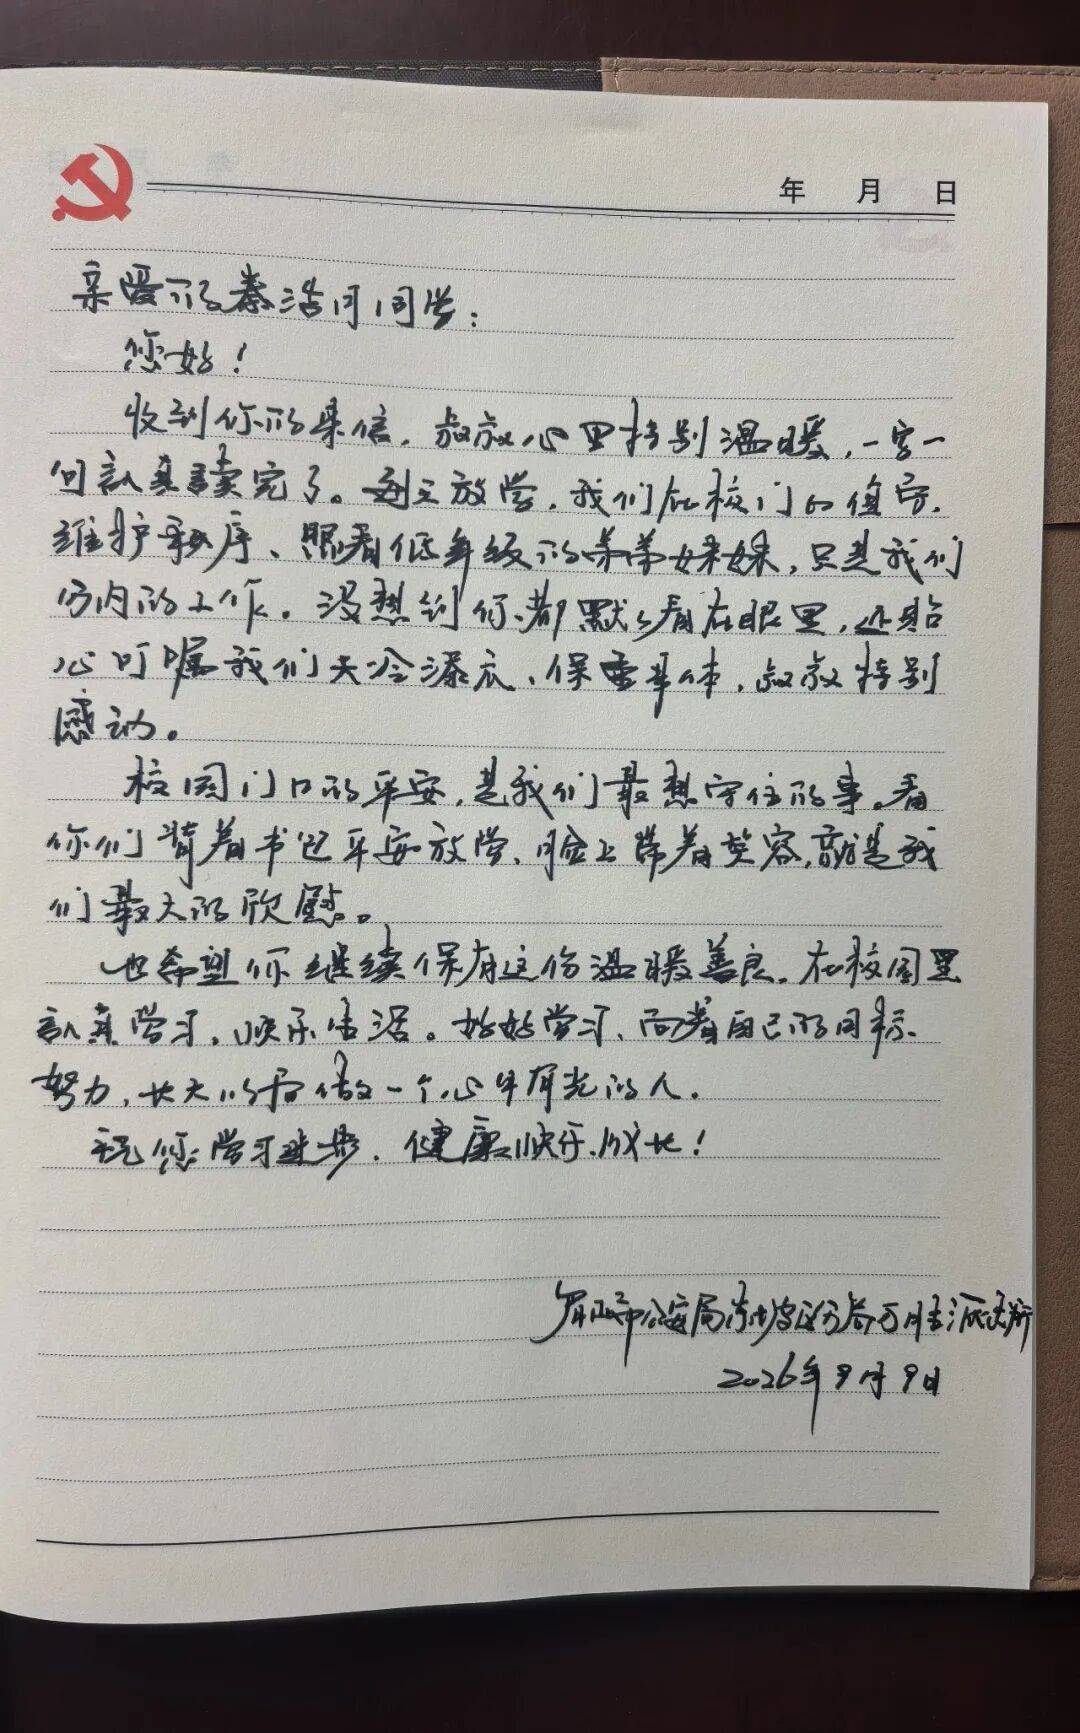 年 月 日
亲爱的秦浩月同学：
您好！
收到你的来信，叔叔心里特别温暖，一字一
句认真读完了。每天放学，我们在校门口值守，
维护秩序、照看低年级的弟弟妹妹，只是我们
分内的工作。没想到你都默默看在眼里，还贴
心叮嘱我们天冷添衣、保重身体，叔叔特别
感动。
校园门口的平安，是我们最想守住的事。看
你们背着书包平安放学、脸上带着笑容，就是我
们最大的欣慰。
也希望你继续保存这份温暖善良，在校园里
认真学习，快乐生活。好好学习、向着自己的目标
努力，长大以后做一个心中有光的人。
祝您学习进步、健康快乐成长！
眉山市公安局东坡区分局万胜派出所
2026年9月9日